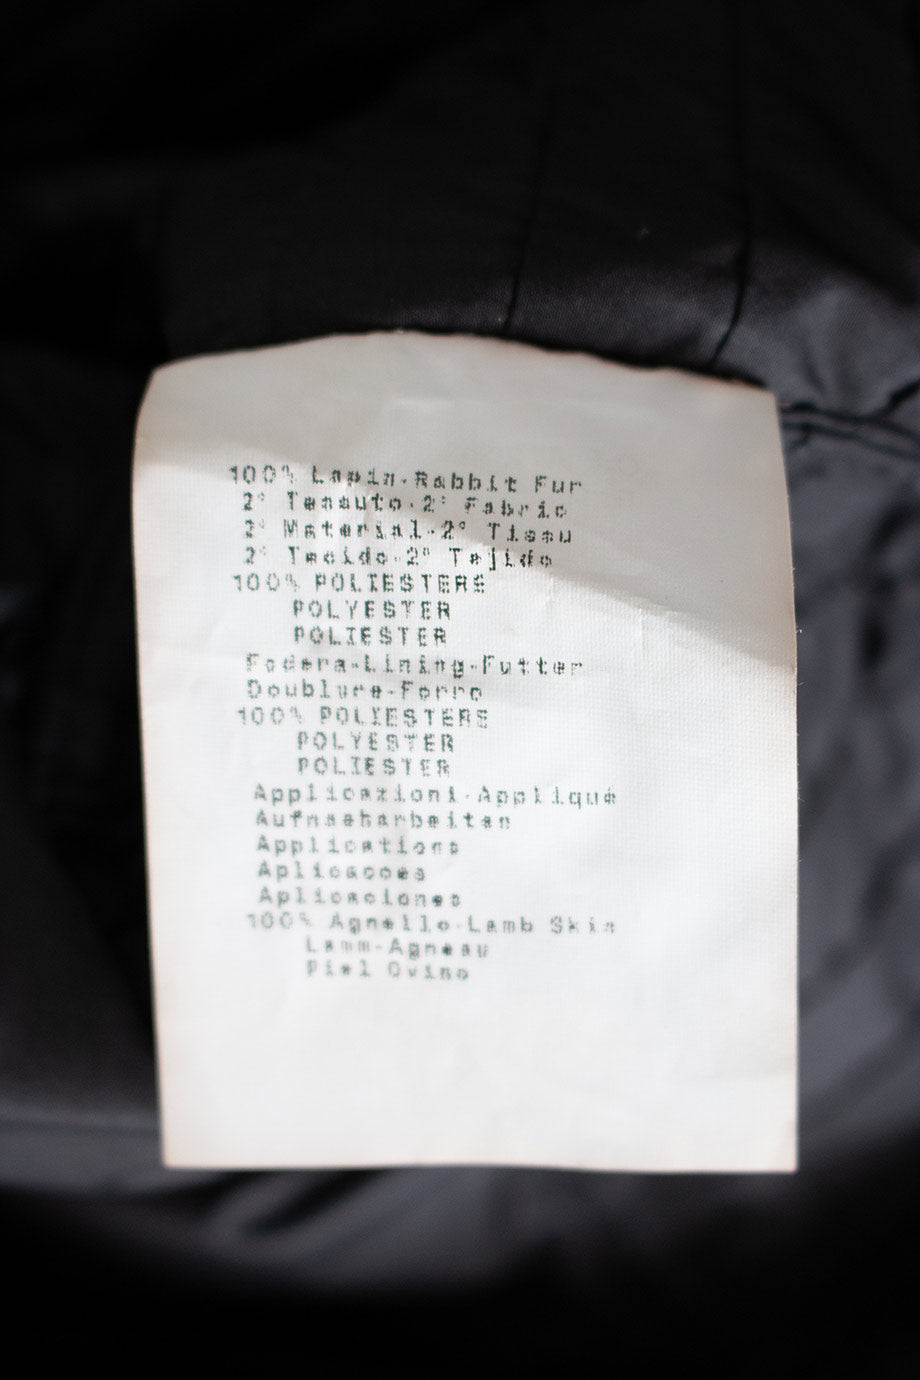 100% Lapin-Rabbit Fur
2° Tessuto-2° Fabric
2° Material-2° Tissu
2° Tecido-2° Tejido
100% POLIESTERE
POLYESTER
POLIESTER
Fodera-Lining-Futter
Doublure-Forro
100% POLIESTERE
POLYESTER
POLIESTER
Applicazioni-Appliqué
Aufnaeharbeiten
Applications
Aplicacoes
Aplicaciones
100% Agnello-Lamb Skin
Lamm-Agneau
Piel Ovino